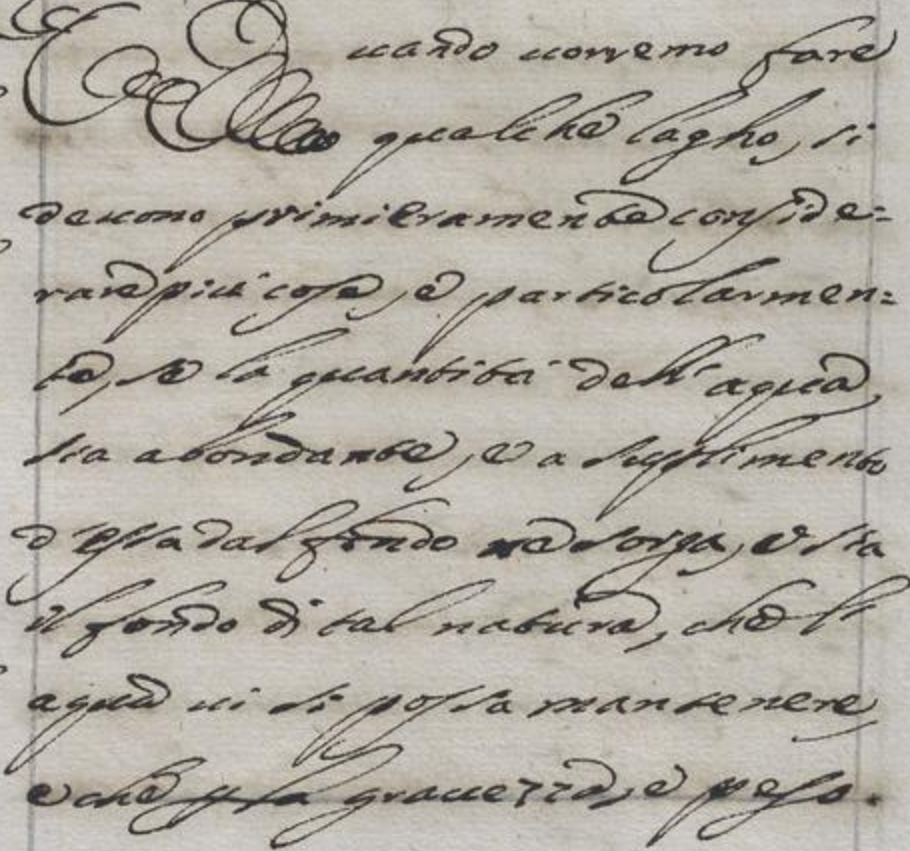 Quando uorremo fare
qualche lagho, si
deuono primieramente conside=
rare più cose, e particolarmen=
te, se la quantità dell'aqua
sia abondante, e a suplimento
d'essa dal fondo ne sorga, e sia
il fondo di tal natura, che l'
aqua ui si possa mantenere
e che p la grauezza, e peso.